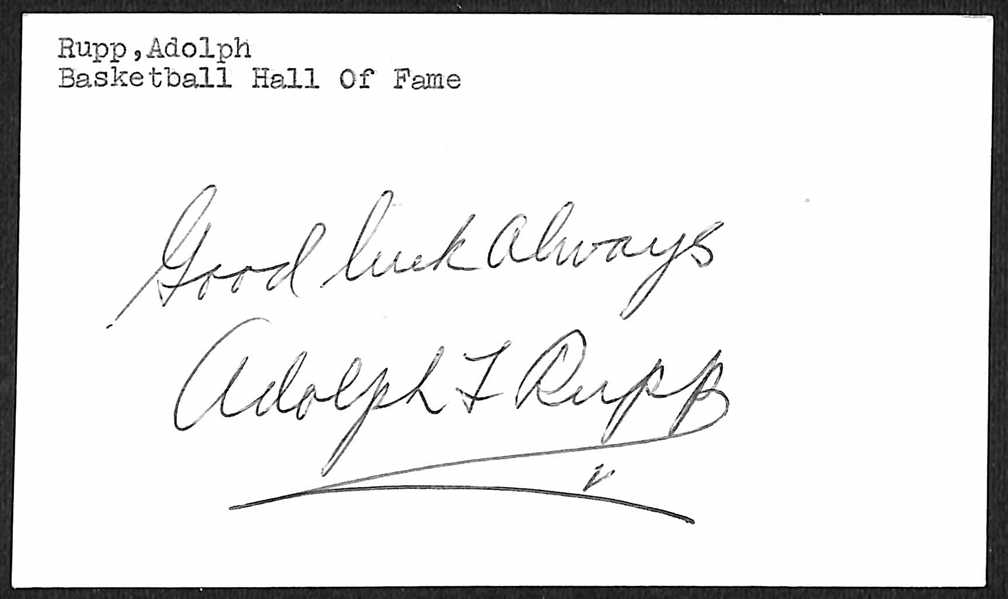 Rupp,Adolph
Basketball Hall Of Fame
Good luck Always
Adolph F Rupp